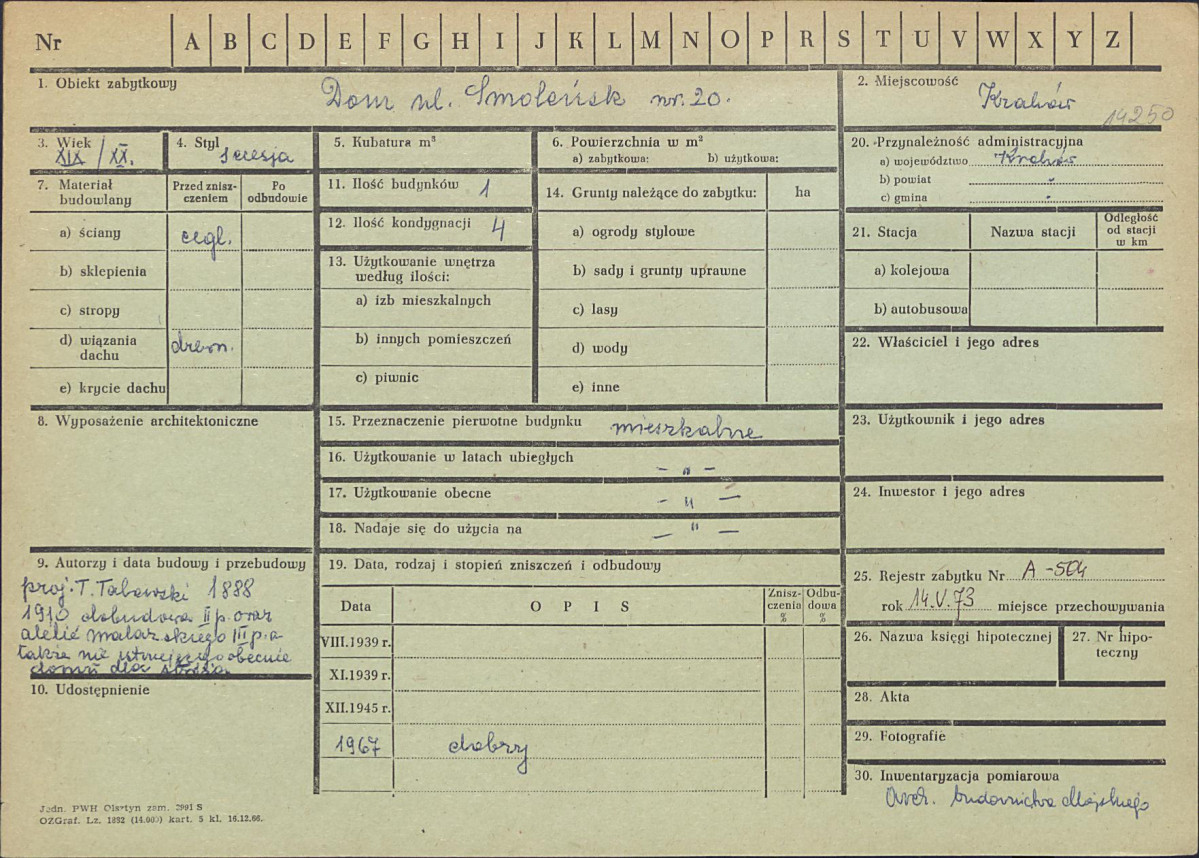 Nr A B C D E F G H I J K L M N O P R S T U V W X Y Z
1. Obiekt zabytkowy Dom ul. Smoleńsk nr. 20.
2. Miejscowość Kraków
14250
3. Wiek XIX/XX.
4. Styl Secesja
5. Kubatura m³
6. Powierzchnia w m²
a) zabytkowa: b) użytkowa:
7. Materiał budowlany
Przed zniszczeniem
Po odbudowie
a) ściany cegl.
b) sklepienia
c) stropy
d) wiązania dachu drewn.
e) krycie dachu
11. Ilość budynków 1
12. Ilość kondygnacji 4
13. Użytkowanie wnętrza
według ilości:
a) izb mieszkalnych
b) innych pomieszczeń
c) piwnic
14. Grunty należące do zabytku: ha
a) ogrody stylowe
b) sady i grunty uprawne
c) lasy
d) wody
e) inne
20. Przynależność administracyjna
a) województwo Kraków
b) powiat "
c) gmina "
21. Stacja Nazwa stacji
Odległość
od stacji
w km
a) kolejowa
b) autobusowa
22. Właściciel i jego adres
8. Wyposażenie architektoniczne
15. Przeznaczenie pierwotne budynku mieszkalne
16. Użytkowanie w latach ubiegłych - " -
17. Użytkowanie obecne - " -
18. Nadaje się do użycia na - " -
23. Użytkownik i jego adres
24. Inwestor i jego adres
9. Autorzy i data budowy i przebudowy
proj. T. 1888
1910 dobudowa II p. oraz
atelié malarskiego III p. a
także nie istniejącego obecnie
domu dla stróża
10. Udostępnienie
19. Data, rodzaj i stopień zniszczeń i odbudowy
Data OPIS
Zniszczenia %
Odbudowa %
VIII.1939 r.
XI.1939 r.
XII.1945 r.
1967 dobry
25. Rejestr zabytku Nr A-504
rok 14.V.73 miejsce przechowywania
26. Nazwa księgi hipotecznej
27. Nr hipoteczny
28. Akta
29. Fotografie
30. Inwentaryzacja pomiarowa
Arch. budownictwa Miejskiego
Jedn. PWH Olsztyn zam. 2991 S
OZGraf. Lz. 1832 (14.000) kart. 5 kl. 16.12.66.